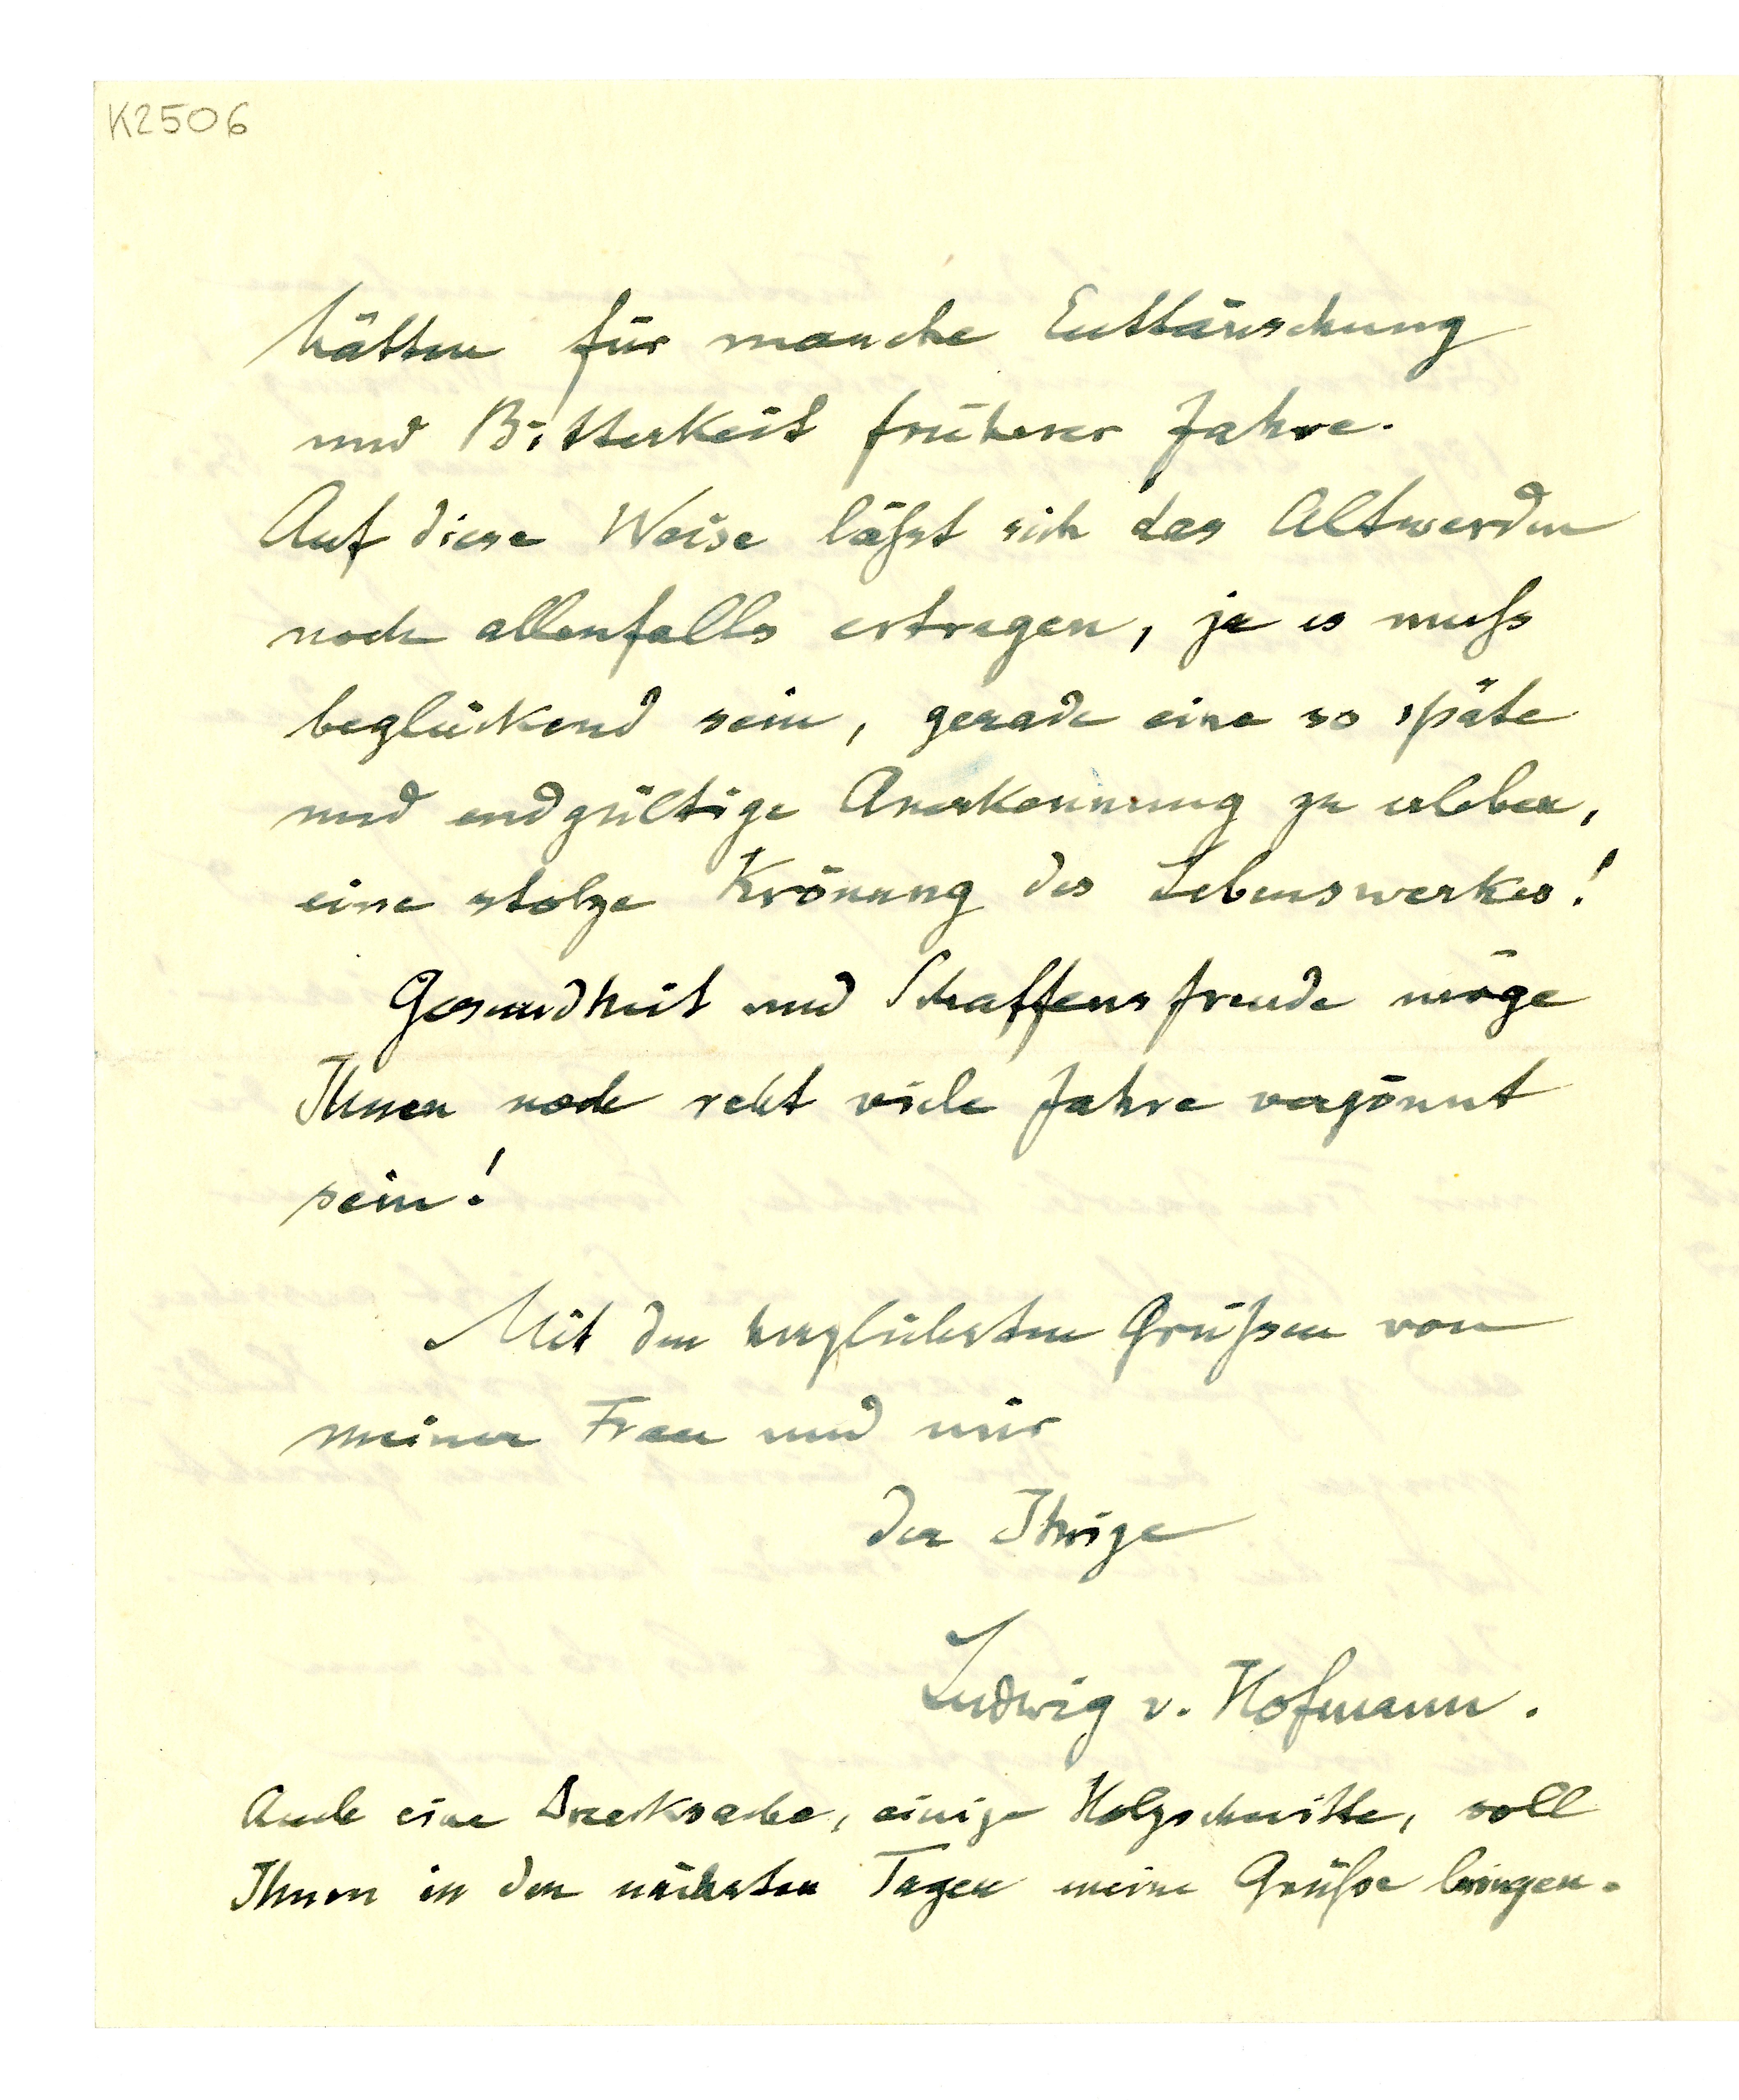 K2506
hätten für manche Enttäuschung
und Bitterkeit früherer Jahre.
Auf diese Weise läßst sich das Altwerden
noch allenfalls ertragen, ja es muß
beglückend sein, gerade eine so späte
und endgültige Anerkennung zu erleben,
eine stolze Krönung des Lebenswerkes!
Gesundheit und Schaffensfreude möge
Ihnen noch recht viele Jahre vergönnt
sein!
Mit den herzlichsten Grüßen von
meiner Frau und mir
der Ihrige
Ludwig v. Hofmann.
Auch eine Drucksache, einige Holzschnitte, soll
Ihnen in den nächsten Tagen meine Grüße bringen.